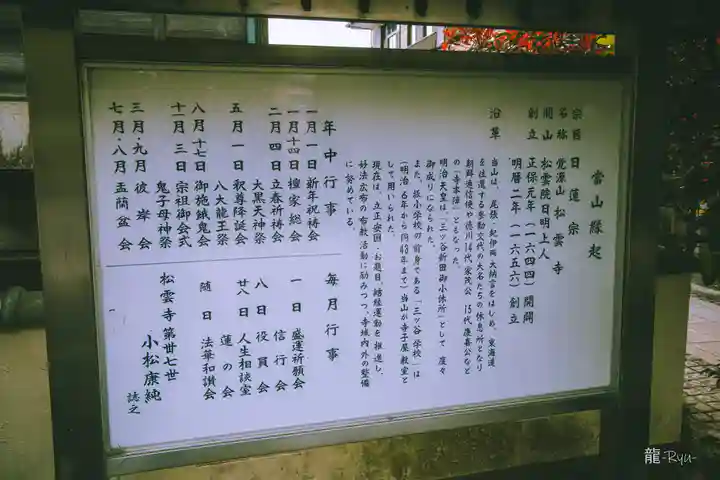 當山縁起
宗旨 日蓮宗
名称 覚源山 松雲寺
開山 松雲院日明上人
創立 正保元年（一六四四）開闢
明暦二年（一六五六）創立
沿革
当山は、尾張・紀伊両大納言をはじめ、東海道
を往還する参勤交代の大名たちの休息所となり
朝鮮通信使や徳川14代家茂公 15代慶喜公など
の「寺本陣」ともなった。
明治天皇は「三ツ谷新田御小休所」として 度々
御成りになられた。
また、抵小学校の前身である「三ツ谷学校」は
（明治6年から同43年まで）当山が寺子屋教室と
して用いられた。
現在は、立正安国・お題目、結縁運動を推進し、
妙法広布の布教活動に励みつつ、寺域内外の整備
に努めている。
年中行事
一月一日 新年祝祷会
一月十四日 檀家総会
二月四日 立春祈祷会
大黒天神祭
五月一日 釈尊降誕会
八大龍王祭
八月十七日 御施餓鬼会
十一月三日 宗祖御会式
鬼子母神祭
三月・九月 彼岸会
七月・八月 盂蘭盆会
毎月行事
一日 盛運祈願会
信行会
八日 役員会
廿八日 人生相談室
蓮の会
随日 法華和讃会
松雲寺第卅七世
小松康純
誌之
龍-Ryu-